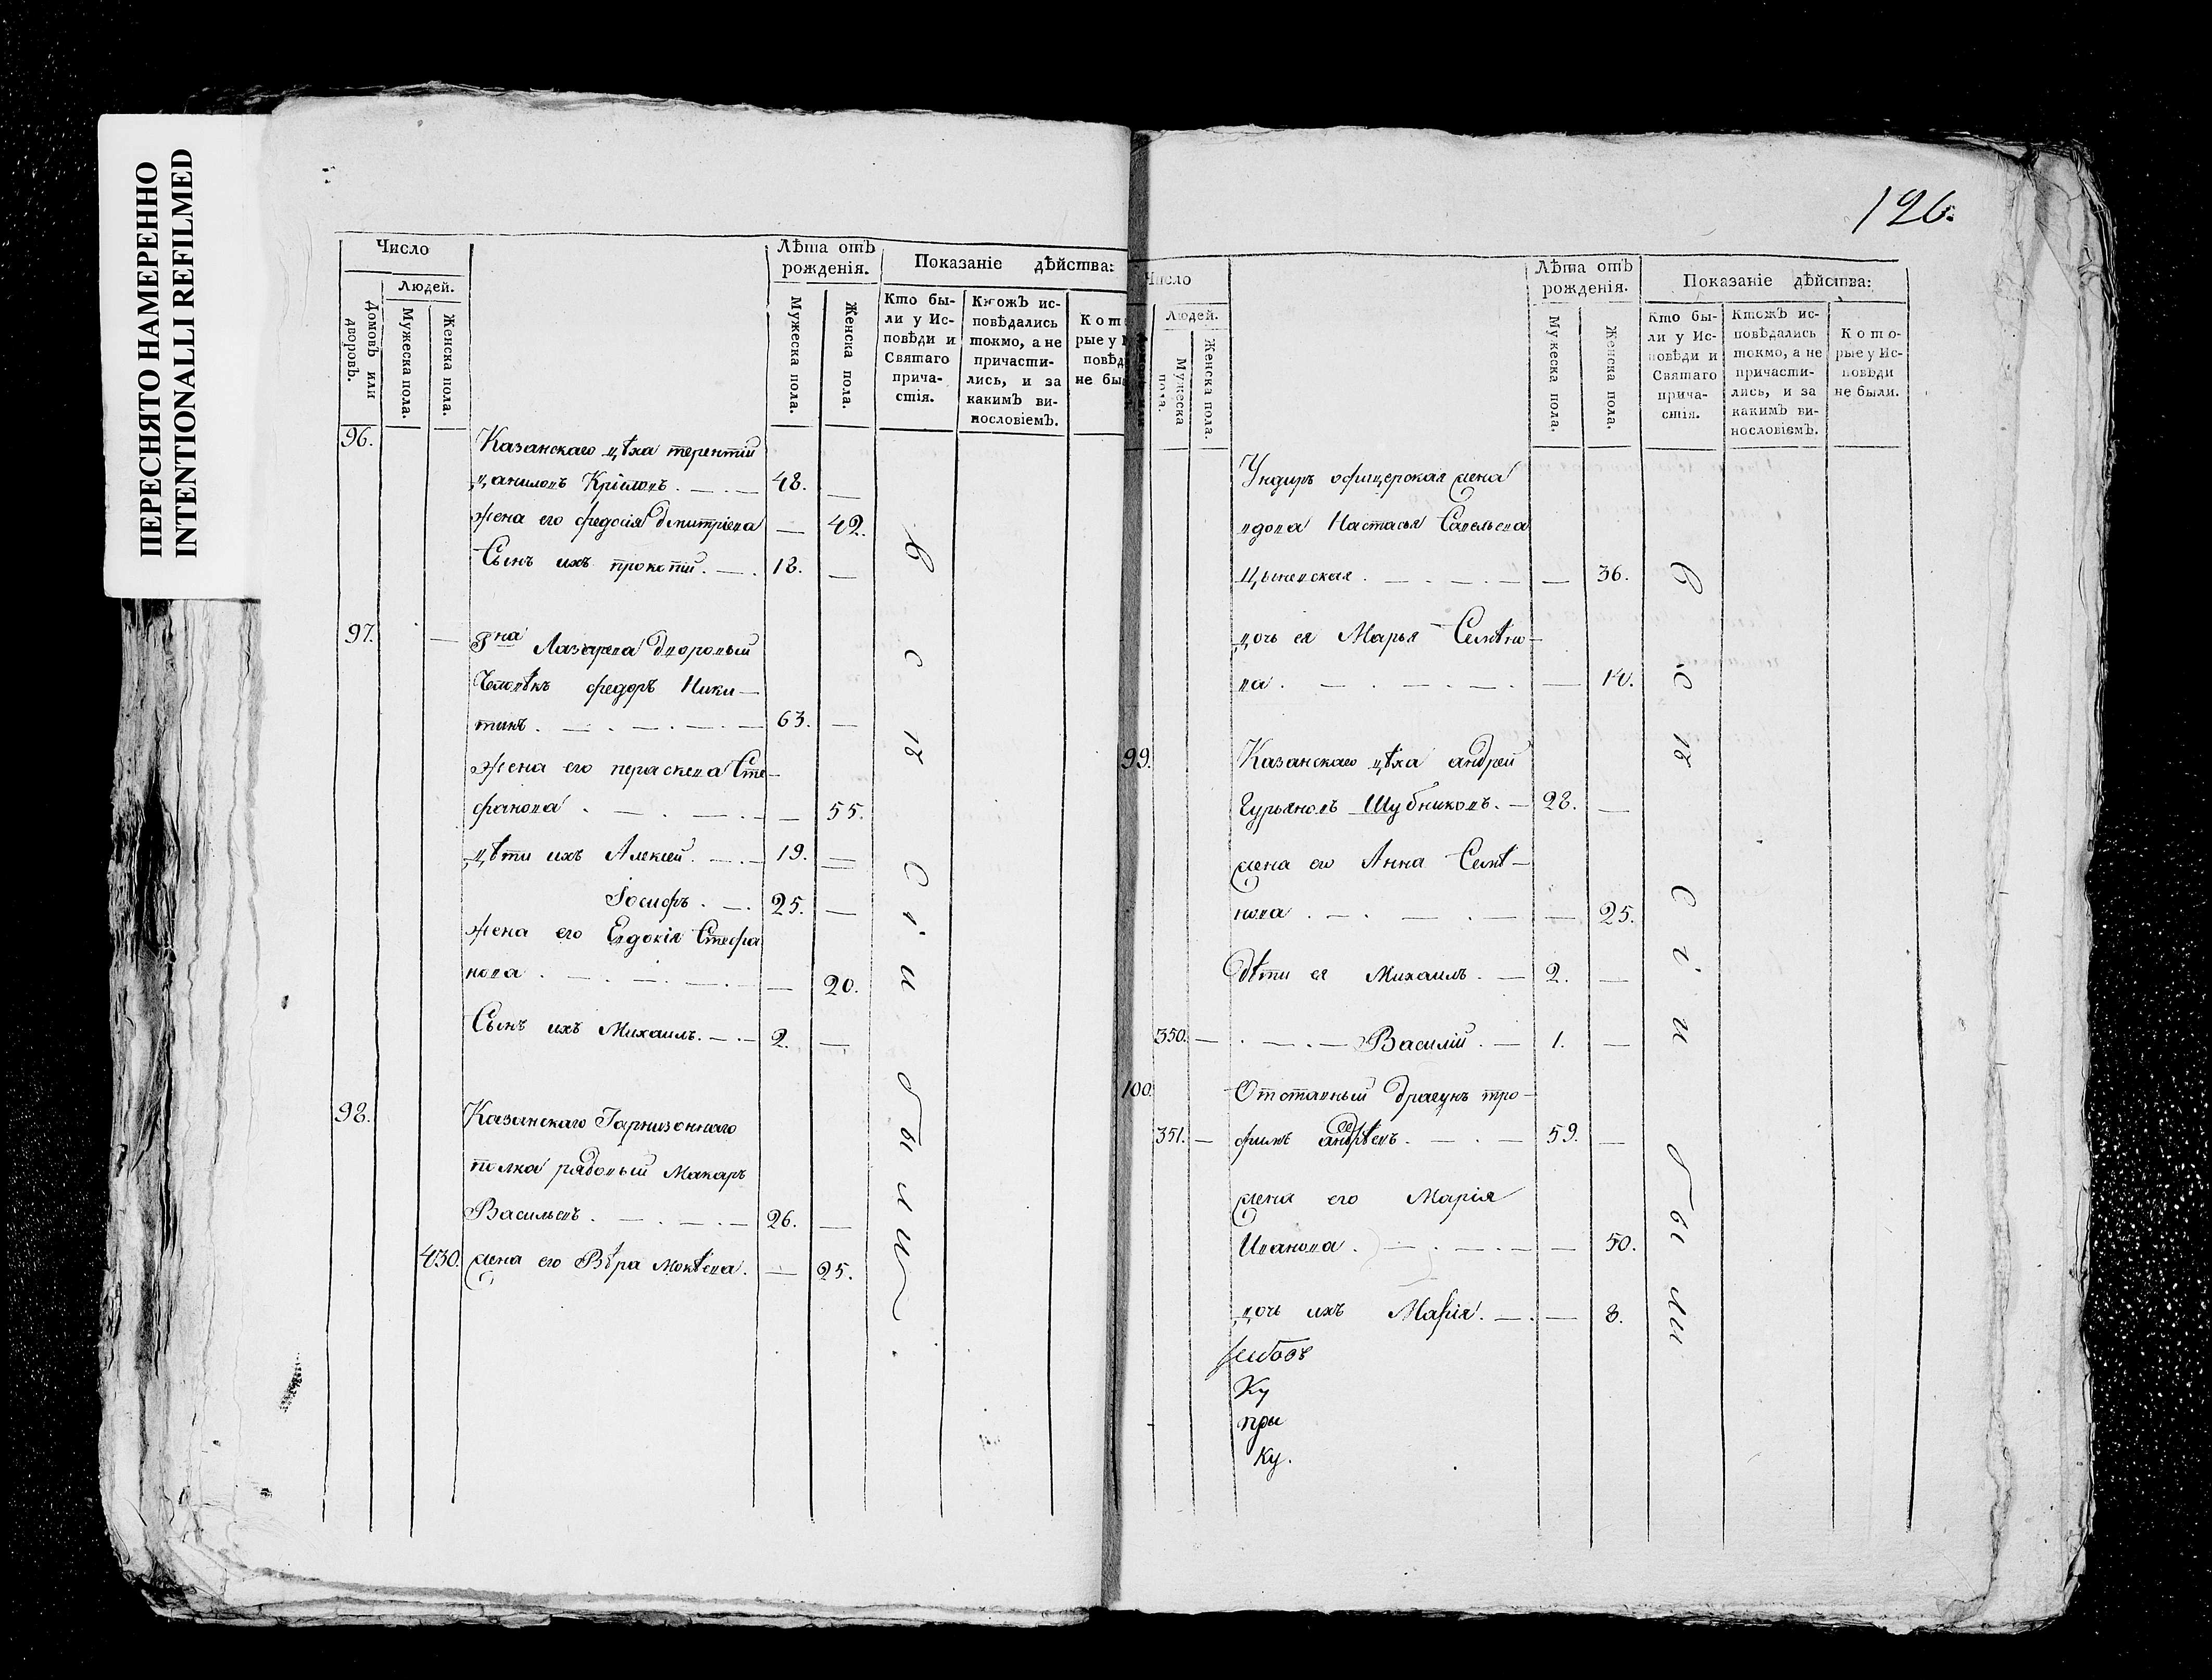 ПЕРЕСНЯТО НАМЕРЕННО
INTENTIONALLI REFILMED
Число
Людей.
Домовъ или дворовъ.
Мужеска пола.
Женска пола.
Лѣта отъ рожденія.
Мужеска пола.
Женска пола.
Показаніе дѣйства:
Кто бы-
ли у Ис-
повѣди и
Святаго
прича-
стія.
Ктожъ ис-
повѣдались
токмо, а не
причасти-
лись, и за
какимъ ви-
нословіемъ.
96. Казанскаго цѣха терентій
даниловъ Крыловъ. 48. —
жена его федосія дмитріева — 42.
Сынъ ихъ прокопій. 18. —
97. Гна Лазарева дворовый
Человѣкъ федоръ Ники—
тинъ. 63. —
жена его параскева Сте—
фанова — 55.
дѣти ихъ Алексей. 19. —
Іосифъ. 25. —
жена его Евдокія Стефа
нова — 20.
Сынъ ихъ Михаилъ. 2. —
98. Казанскаго Гарнизоннаго
полка рядовый Макаръ
Васильевъ. 26. —
430. жена его Вѣра Мокѣева. — 25.
всѣ
сіи
были
126.
Число
Людей.
Мужеска пола.
Женска пола.
Лѣта отъ рожденія.
Мужеска пола.
Женска пола.
Показаніе дѣйства:
Кто бы-
ли у Ис-
повѣди и
Святаго
прича-
стія.
Ктожъ ис-
повѣдались
токмо, а не
причасти-
лись, и за
какимъ ви-
нословіемъ.
Кото-
рые у Ис-
повѣди
не были.
Ундиръ офицерская жена
вдова Настасья Савельева
— 36.
дочь ея Марья Семѣно—
ва. —
99. Казанскаго цѣха андрей
Гурьяновъ Шубниковъ. — 28. —
жена его Анна Семѣ—
нова — 25.
дѣти ея Михаилъ. — 2. —
350. — Василій. — 1. —
100. Отставный драгунъ тро—
351. — фимъ андрѣевъ. 59. —
жена его Марія
Иванова. — 50.
дочь ихъ Марія. — 8.
Ку
при
ку.
всѣ
сіи
были